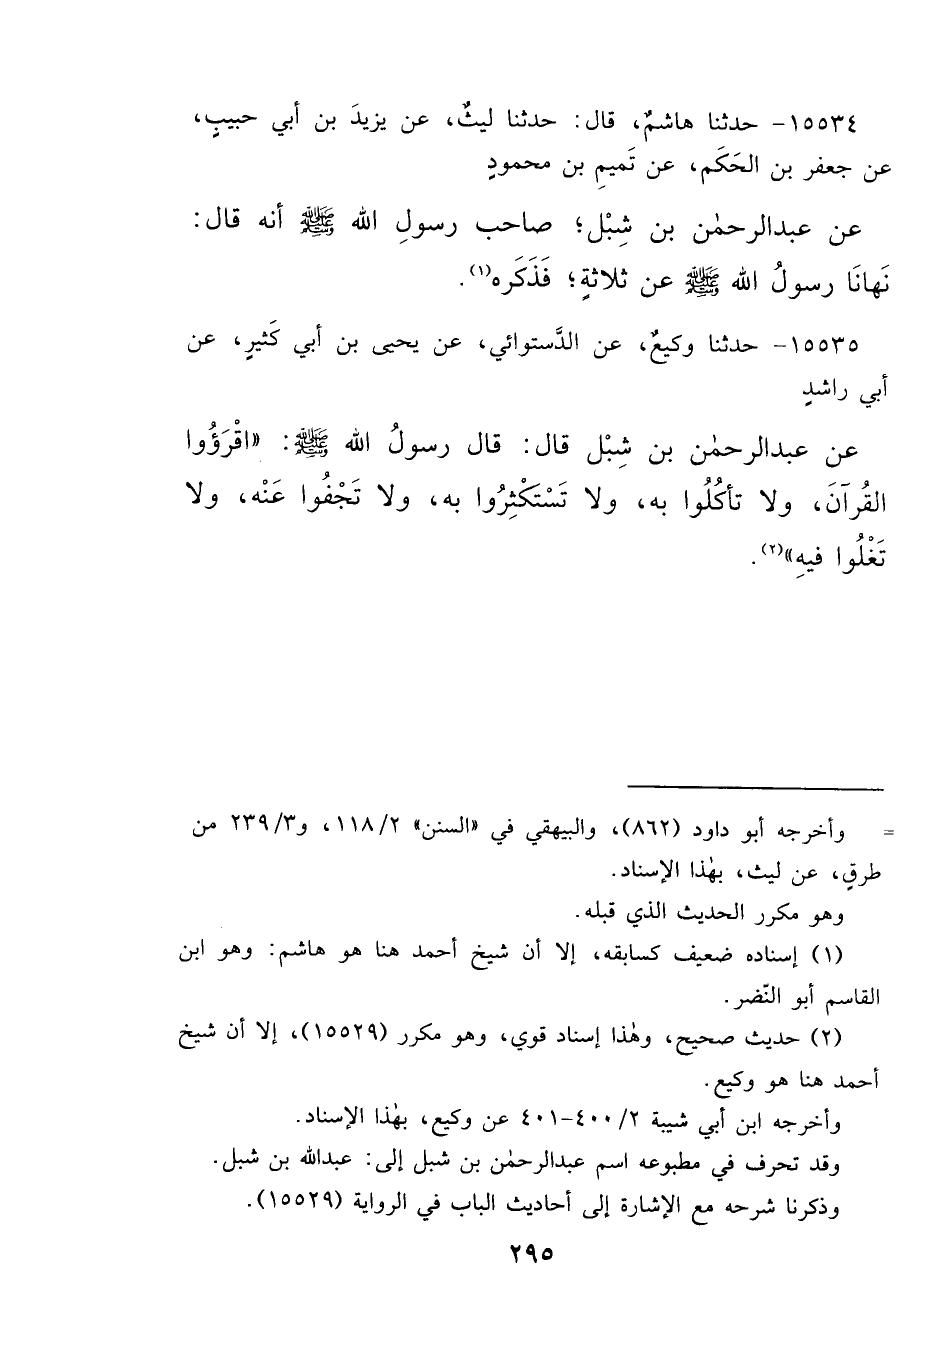 ١٥٥٣٤- حدثنا هاشمٌ، قال: حدثنا ليثٌ، عن يزيدَ بن أبي حبيبٍ،
عن جعفر بن الحَكَم، عن تَميمِ بن محمودٍ
عن عبدالرحمٰن بن شِبْل؛ صاحب رسولِ الله ﷺ أنه قال:
نَهانَا رسولُ الله ﷺ عن ثلاثةٍ؛ فَذَكَره(١).
١٥٥٣٥- حدثنا وكيعٌ، عن الدَّستوائي، عن يحيى بن أبي كَثيرٍ، عن
أبي راشدٍ
عن عبدالرحمٰن بن شِبْل قال: قال رسولُ الله ﷺ: «اقْرَؤُوا
القُرآنَ، ولا تأكُلُوا به، ولا تَسْتَكْثِرُوا به، ولا تَجْفُوا عَنْه، ولا
تَغْلُوا فيهِ»(٢).
= وأخرجه أبو داود (٨٦٢)، والبيهقي في «السنن» ١١٨/٢، و٢٣٩/٣ من
طرقٍ، عن ليث، بهٰذا الإسناد.
وهو مكرر الحديث الذي قبله.
(١) إسناده ضعيف كسابقه، إلا أن شيخ أحمد هنا هو هاشم: وهو ابن
القاسم أبو النّضر.
(٢) حديث صحيح، وهٰذا إسناد قوي، وهو مكرر (١٥٥٢٩)، إلا أن شيخ
أحمد هنا هو وكيع.
وأخرجه ابن أبي شيبة ٢/ ٤٠٠-٤٠١ عن وكيع، بهٰذا الإسناد.
وقد تحرف في مطبوعه اسم عبدالرحمٰن بن شبل إلى: عبدالله بن شبل.
وذكرنا شرحه مع الإشارة إلى أحاديث الباب في الرواية (١٥٥٢٩).
٢٩٥